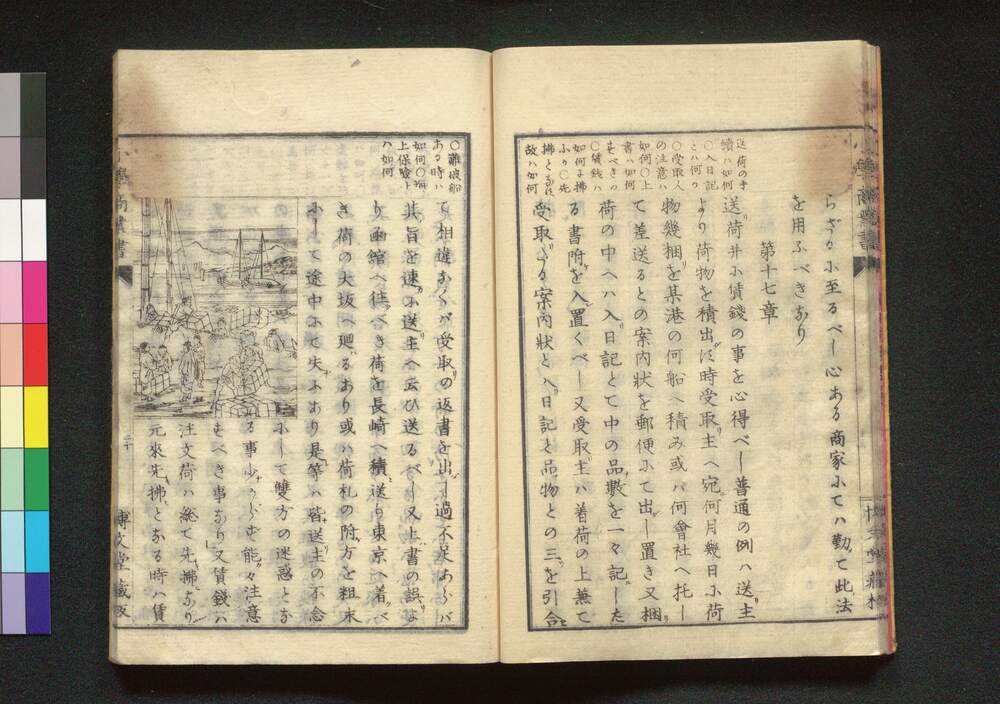 らざるに至るべし心ある商家にてハ勤て此法
を用ふべきなり
第十七章
送荷并に賃錢の事を心得べし普通の例ハ送主
より荷物を積出す時受取主へ宛何月幾日小荷
物幾捆を某港の何船へ積み或ハ何會社へ托し
て差送るとの案内狀を郵便にて出し置き又捆
荷の中へハ入日記とて中の品數を一々記した
る書附を入置くべし又受取主ハ着荷の上兼て
受取たる案内狀と入日記と品物との三を引合
送荷の手
續ハ如何
〇入日記
とハ何か
〇受取人
の注意ハ
如何〇上
書ハ如何
すべきか
〇賃錢ハ
如何に拂
ふか〇先
拂となす
故ハ如何
て相違なくバ受取の返書を出す過不足あらバ
其旨を速に送主へ云ひ送るべし又上書の誤よ
り函館へ往べき荷を長崎へ積送り東京へ着べ
き荷の大坂へ廻るあり或ハ荷札の附方を粗末
にして途中にて失ふあり是等ハ皆送主の不念
にして雙方の迷惑とな
る事少からず能々注意
すべき事なり又賃錢ハ
注文荷ハ総て先拂なり
元來先拂となる時ハ賃
〇難破船
ある時ハ
如何〇海
上保險ト
ハ如何
博文堂藏版